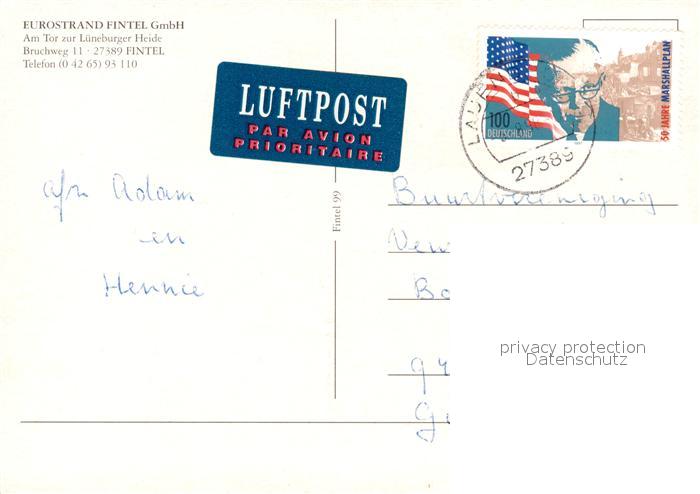 EUROSTRAND FINTEL GmbH
Am Tor zur Lüneburger Heide
Bruchweg 11 · 27389 FINTEL
Telefon (0 42 65) 93 110
LUFTPOST
PAR AVION
PRIORITAIRE
100
DEUTSCHLAND
50 JAHRE MARSHALLPLAN
27389
Fintel 99
afz Adam
en
Hennie
Buurtvereniging
Ven
Bo
94
privacy protection
Datenschutz